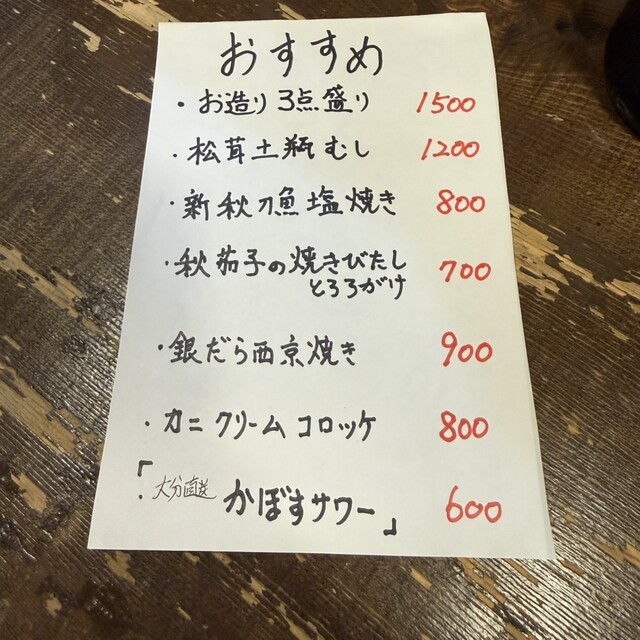 おすすめ
・お造り3点盛り 1500
・松茸土瓶むし 1200
・新秋刀魚塩焼き 800
・秋茄子の焼きびたし 700
とろろがけ
・銀だら西京焼き 900
・カニクリームコロッケ 800
・「大分直送 かぼすサワー」 600